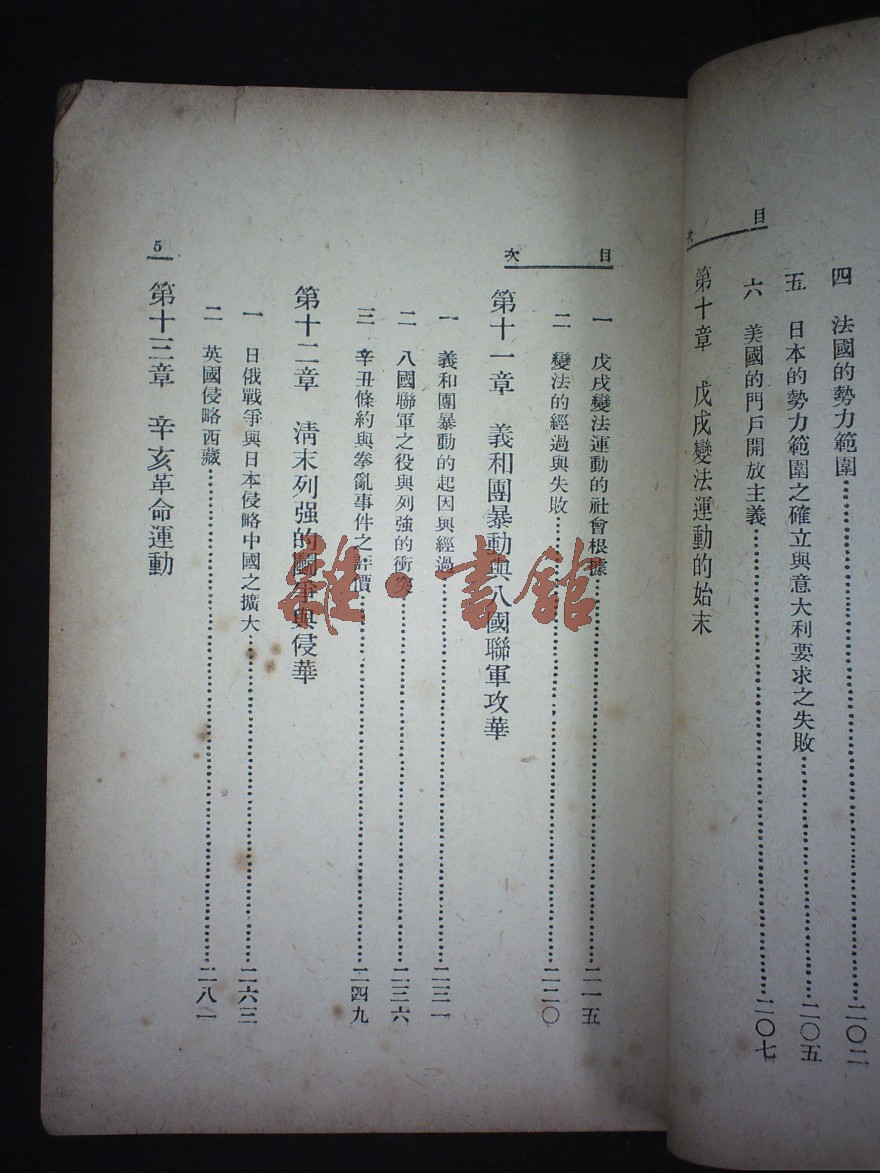 目次
四 法國的勢力範圍……二〇二
五 日本的勢力範圍之確立與意大利要求之失敗……二〇五
六 美國的門戶開放主義……二〇七
第十章 戊戌變法運動的始末
目次
一 戊戌變法運動的社會根據……二一五
二 變法的經過與失敗……二二〇
第十一章 義和團暴動與八國聯軍攻華
一 義和團暴動的起因與經過……二三一
二 八國聯軍之役與列強的衝突……二三六
三 辛丑條約與拳亂事件之評價……二四九
第十二章 清末列强的鬭爭與侵華
一 日俄戰爭與日本侵略中國之擴大……二六三
二 英國侵略西藏……二八一
第十三章 辛亥革命運動
5
雜·書館